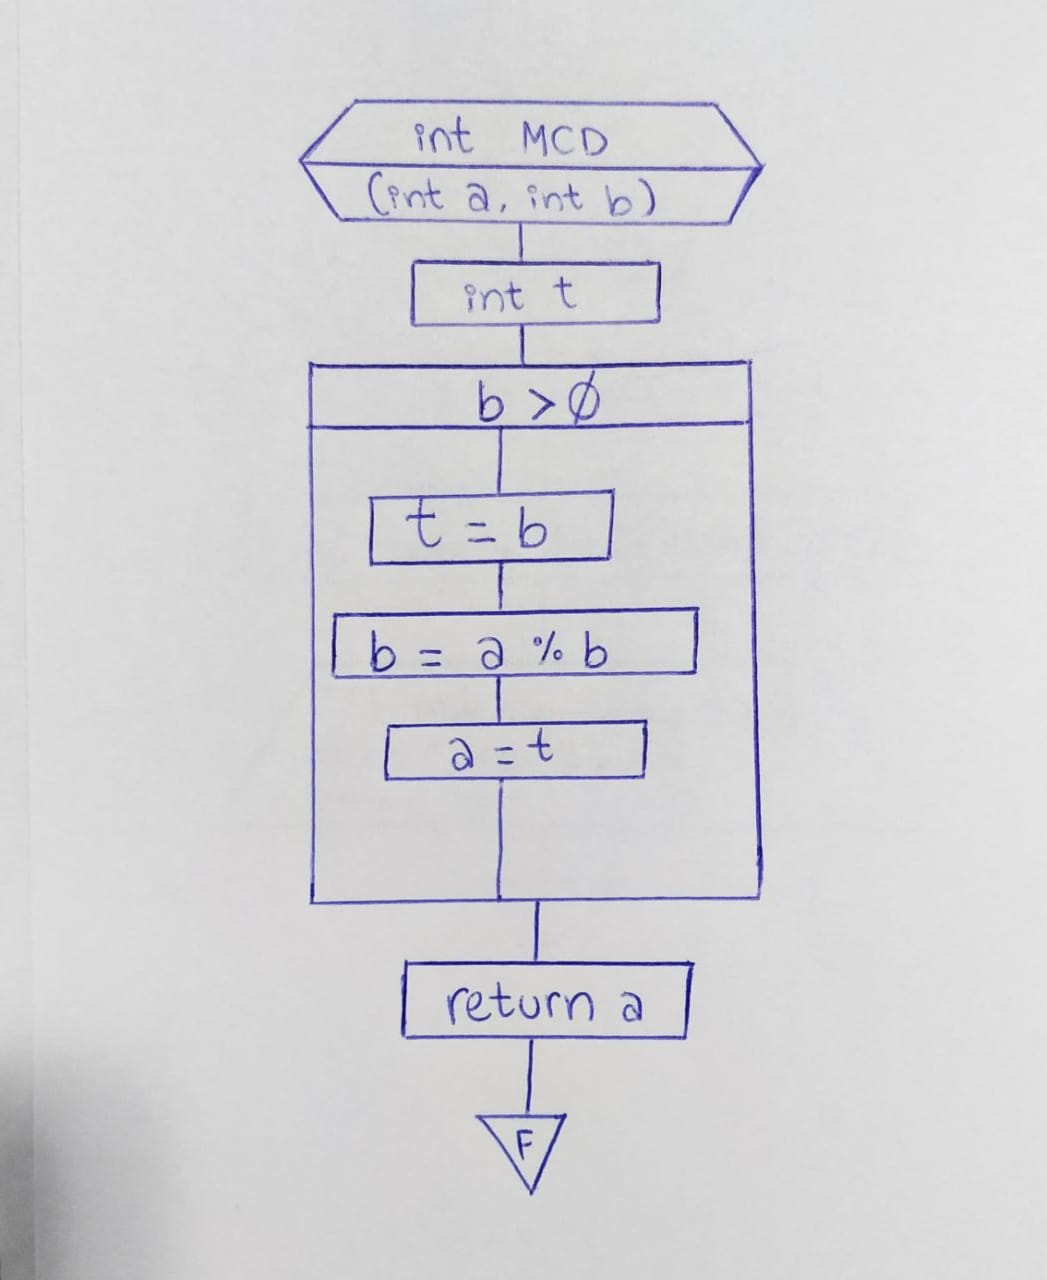 int MCD
(int a, int b)
int t
b > Ø
t = b
b = a % b
a = t
return a
F